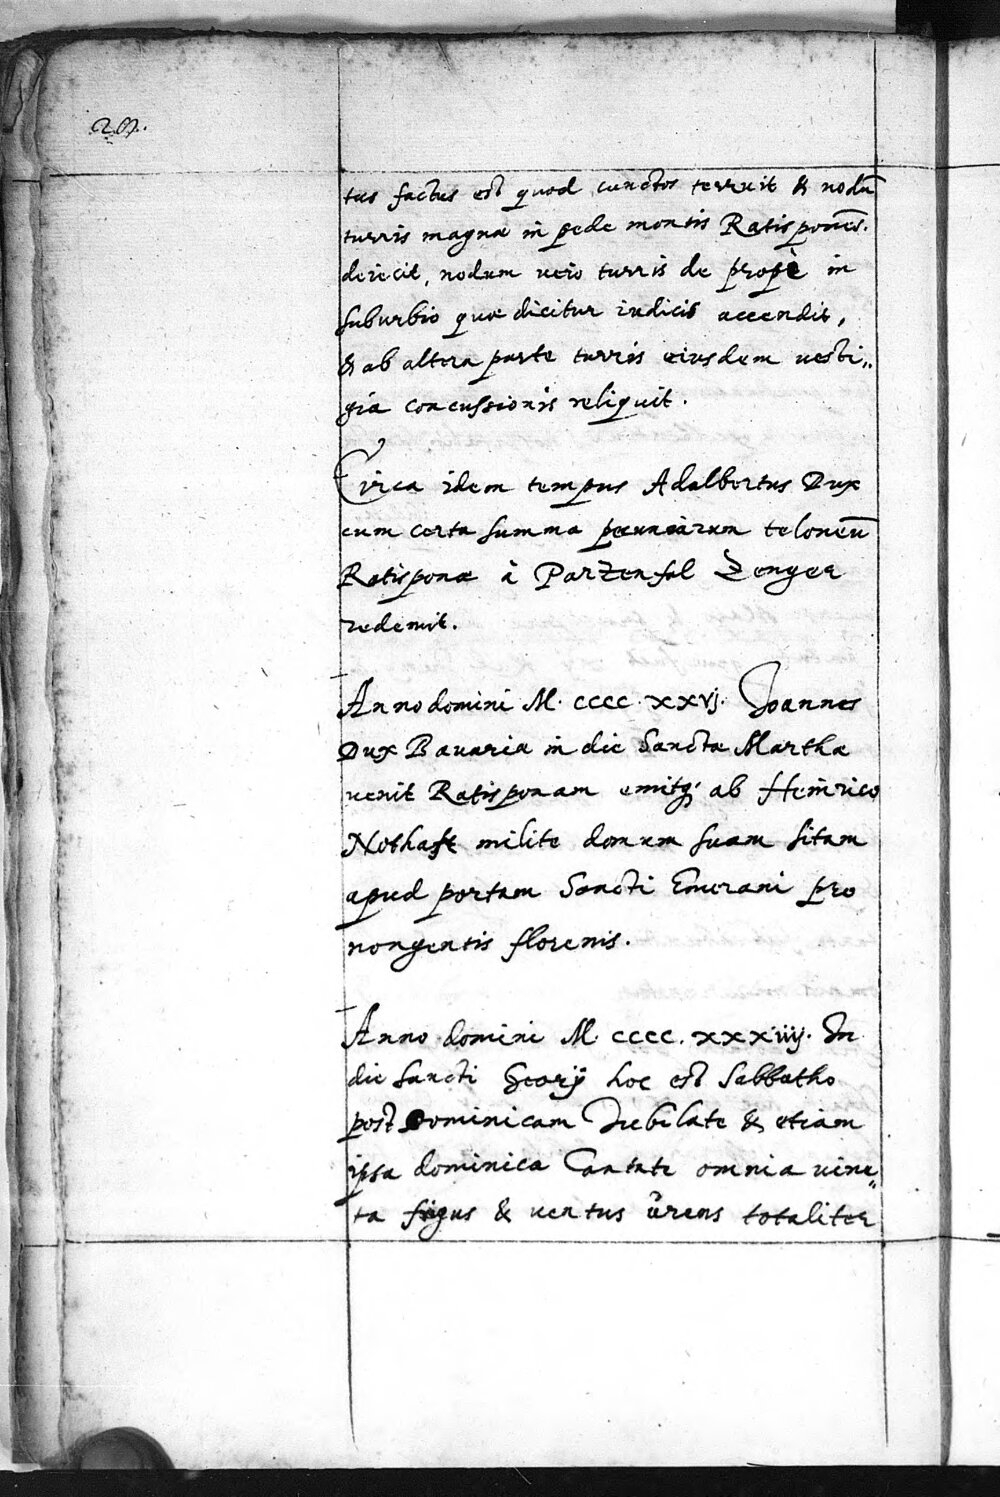 tus factus est quod cunctos terruit & nodū
turris magnæ in pede montis Ratisponēs.
deiecit, nodum vero turris de propè in
suburbio quæ dicitur iudicis accendit,
& ab altera parte turris eiusdem vesti„
gia concussionis reliquit.
Circa idem tempus Adalbertus Dux
cum certa summa pecuniarum teloneū
Ratisponæ à Parzenfal Zenger
redemit.
Anno domini M. CCCC. XXVj. Joannes
Dux Bavariæ in die Sanctæ Marthæ
venit Ratisponam emitq; ab Heinrico
Nothaft milite domum suam sitam
apud portam Sancti Emerani pro
nongentis florenis.
Anno domini M. CCCC. XXXiiij. In
die Sancti Georij hoc est Sabbatho
post Dominicam Jubilate & etiam
ipsa dominica Cantate omnia vine„
ta frigus & ventus ūrens totaliter